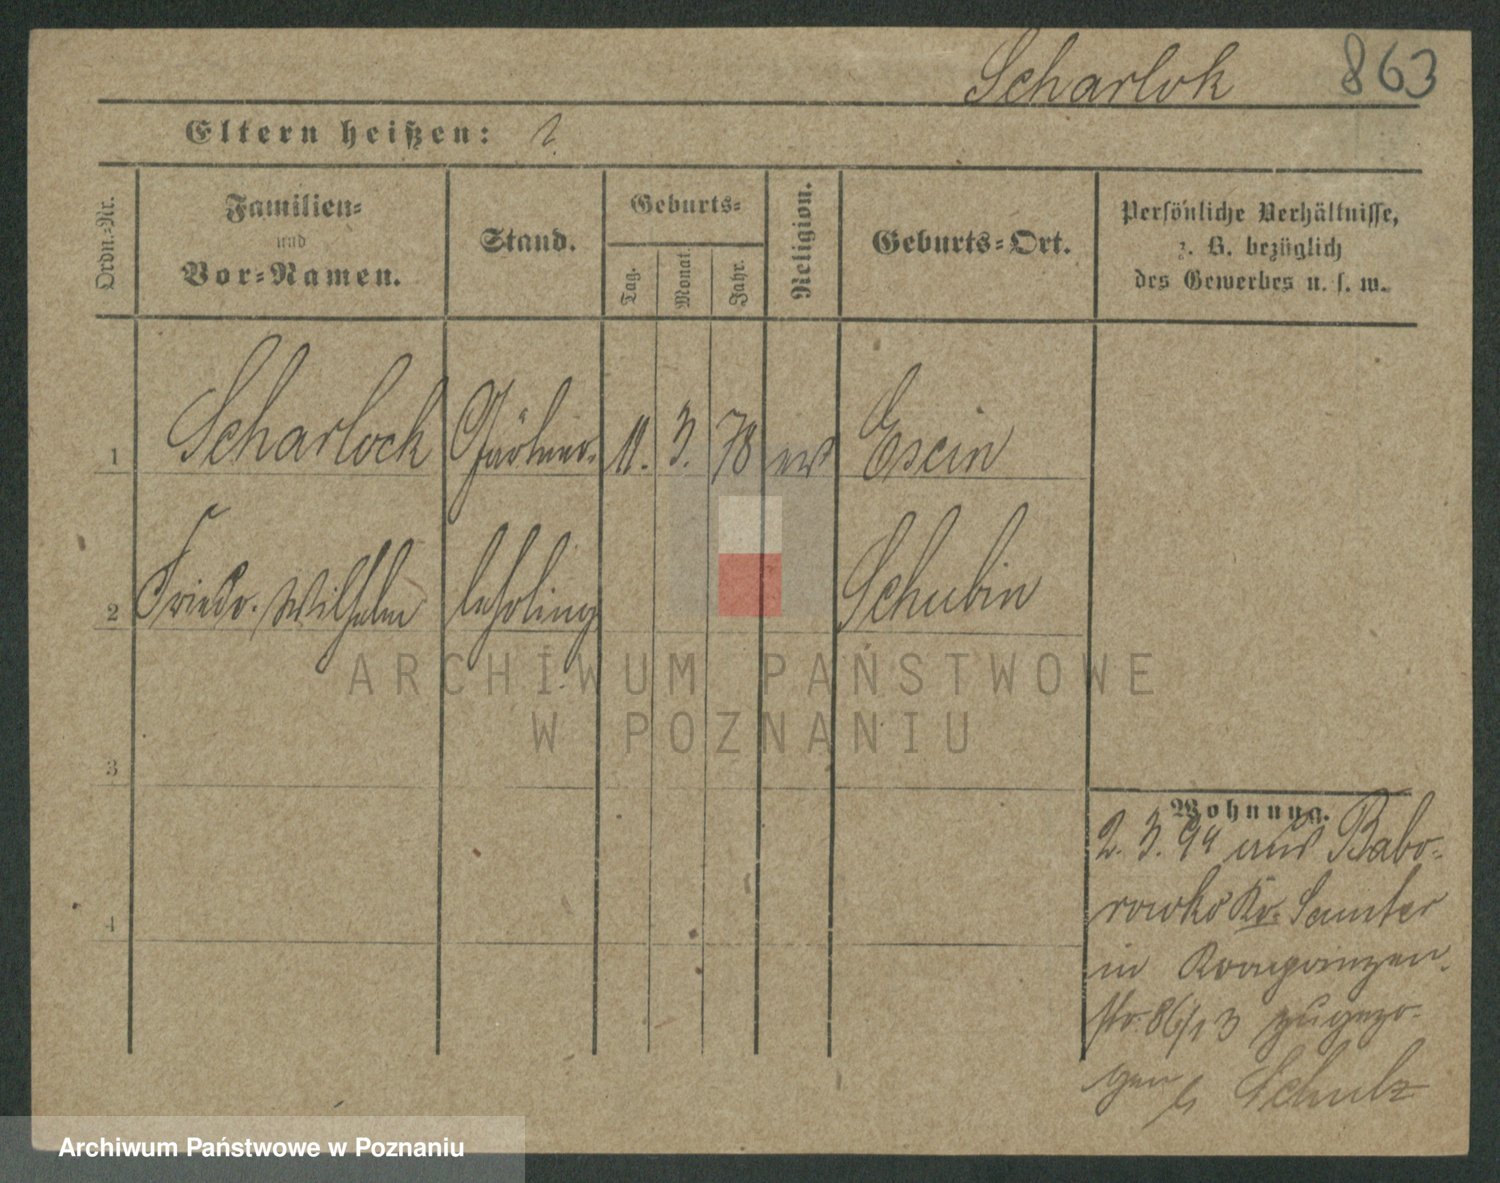 Scharlok 863
Eltern heißen: ?
Ordn.-Nr.
Familien-
und
Vor-Namen.
Stand.
Geburts-
Tag.
Monat.
Jahr.
Religion.
Geburts-Ort.
Persönliche Verhältnisse,
z. B. bezüglich
des Gewerbes u. s. w.
1 Scharlock Gärtner- 11. 3. 78 Exin
2 Friedr. Wilhelm lehrling Schubin
3
4
Wohnung.
2. 3. 94 aus Babo-
rowko Kr. Samter
in Kronprinzen-
str. 86/13 zugezo-
gen b Schulz
ARCHIWUM PAŃSTWOWE
W POZNANIU
Archiwum Państwowe w Poznaniu